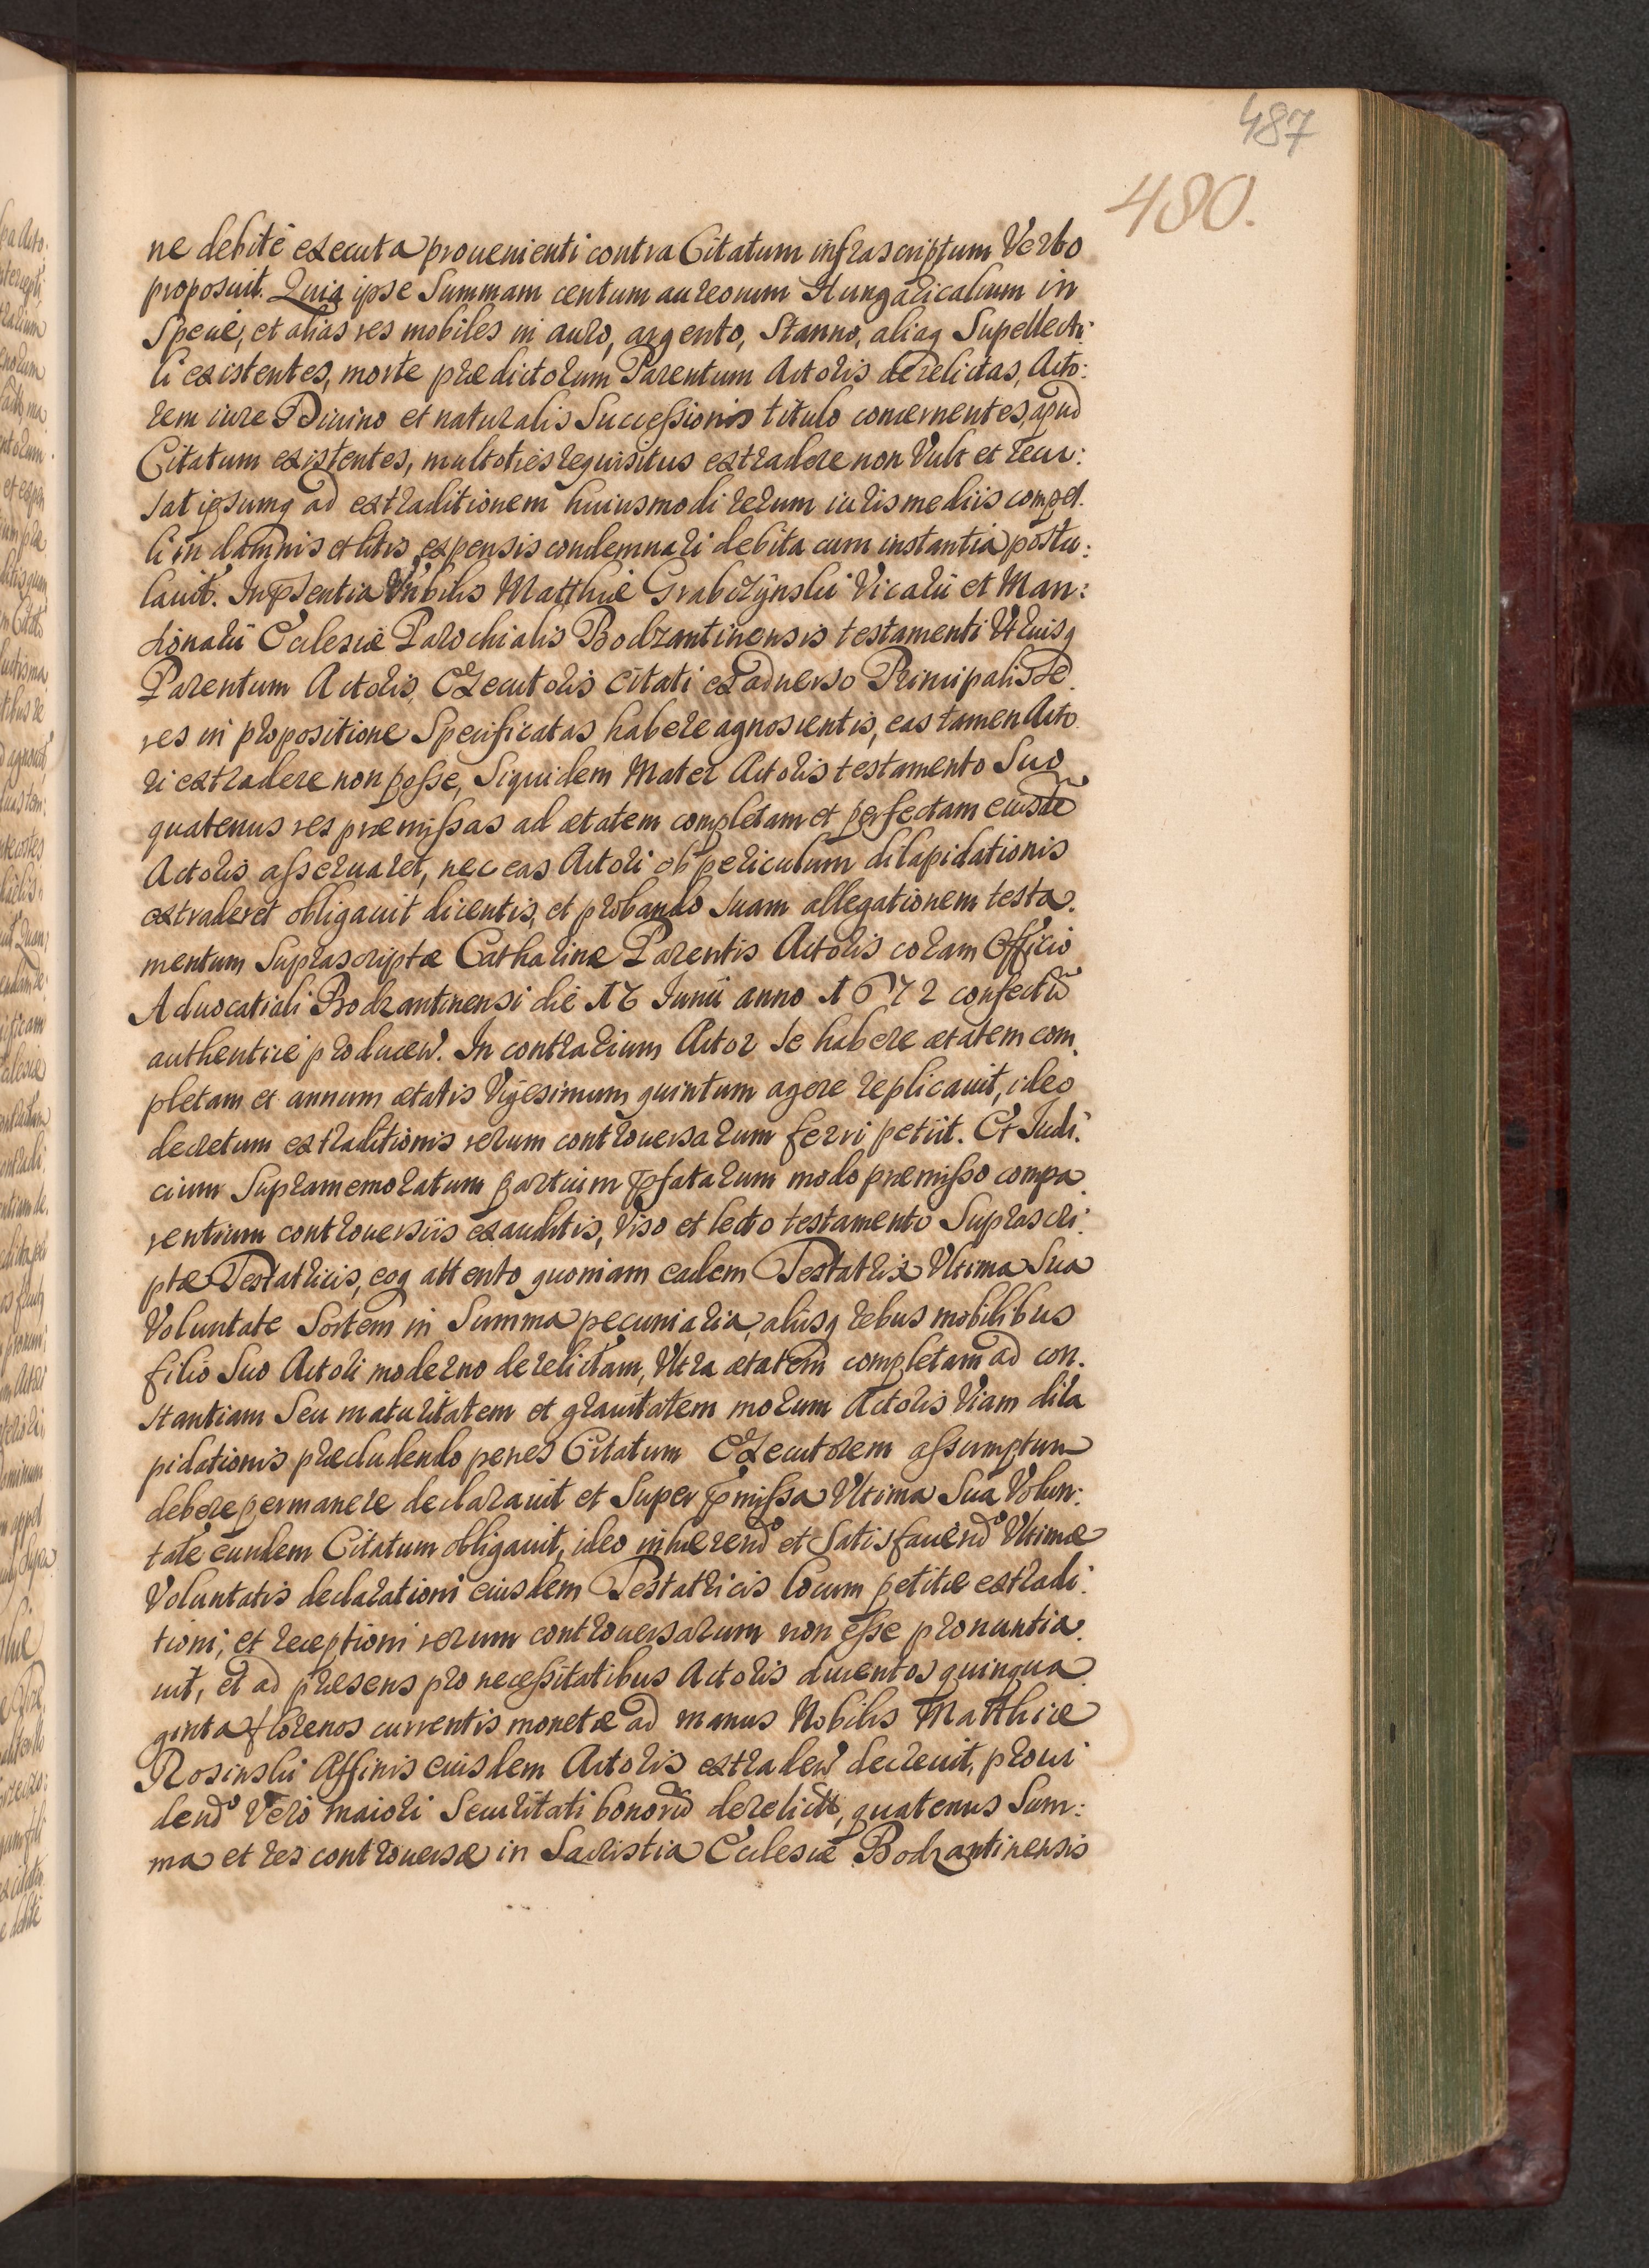 487
480.
ne debitè executa prouenienti contra Citatum infrascriptum Verbo
proposuit. Quia ipse Summam centum aureorum Hungaricalium in
Speciè, et alias res mobiles in auro, argento, Stanno, aliaq Supellecti:
li existentes, morte prædictorum Parentum Actoris derelictas, Acto:
rem iure Diuino et naturalis Successionis titulo concernentes, apud
Citatum existentes, multoties requisitus extradere non Vult et recu:
sat ipsumq ad extraditionem huiusmodi rerum iuris mediis compel:
li in damnis et litis expensis condemnari debita cum instantia postu:
lauit. In psentia Vnbilis Matthiæ Grabczÿnski Vicarii et Man:
sionarii Ecclesiæ Parochialis Bodzantinensis testamenti Vtriusq
Parentum Actoris, Executoris citati ex aduerso Principalis Se
res in propositione Specificatas habere agnoscentis, eas tamen Acto
ri extradere non posse, Siquidem Mater Actoris testamento Suo
quatenus res præmissas ad ætatem completam et perfectam eiusdē
Actoris asseruaret, nec eas Actori ob periculum dilapidationis
extraderet obligauit dicentis, et probando Suam allegationem testa:
mentum Suprascriptæ Catharinæ Parentis Actoris coram Officio
Aduocatiali Bodzantinensi die 17 Junii anno 1672 confectū
authenticè producen. In contrarium Actor Se habere ætatem com
pletam et annum ætatis Vigesimum quintum agere replicauit, ideo
decretum extraditionis rerum controuersarum ferri petiit. Et Judi:
cium Supramemoratum partium pfatarum modo præmisso compa
rentium controuersiis exauditis, Viso et lecto testamento Suprascri:
ptæ Testatricis, eoq attento quoniam eadem Testatrix Vltima Sua
Voluntate Sortem in Summa pecuniaria, aliisq rebus mobilibus
filio Suo Actori moderno derelictam, Vltra ætatem completam ad con:
stantiam Seu maturitatem et grauitatem morum Actoris Viam dila
pidationis præcludendo penes Citatum Executorem assumptum
debere permanere declarauit et Super pmissa Vltima Sua Volun:
tate eundem Citatum obligauit, ideo inhærendo et Satisfaciendo Vltimæ
Voluntatis declarationi eiusdem Testatricis locum petitæ extradi:
tioni, et receptioni rerum controuersarum non esse pronuntia:
uit, et ad præsens pro necessitatibus Actoris ducentos quinqua
ginta florenos currentis monetæ ad manus Nobilis Matthiæ
Rosinski Affinis eiusdem Actoris extraden decreuit, proui
dendo Vero maiori Securitati bonorū derelict, quatenus Sum:
ma et res controuersæ in Sacristia Ecclesiæ Bodzantinensis